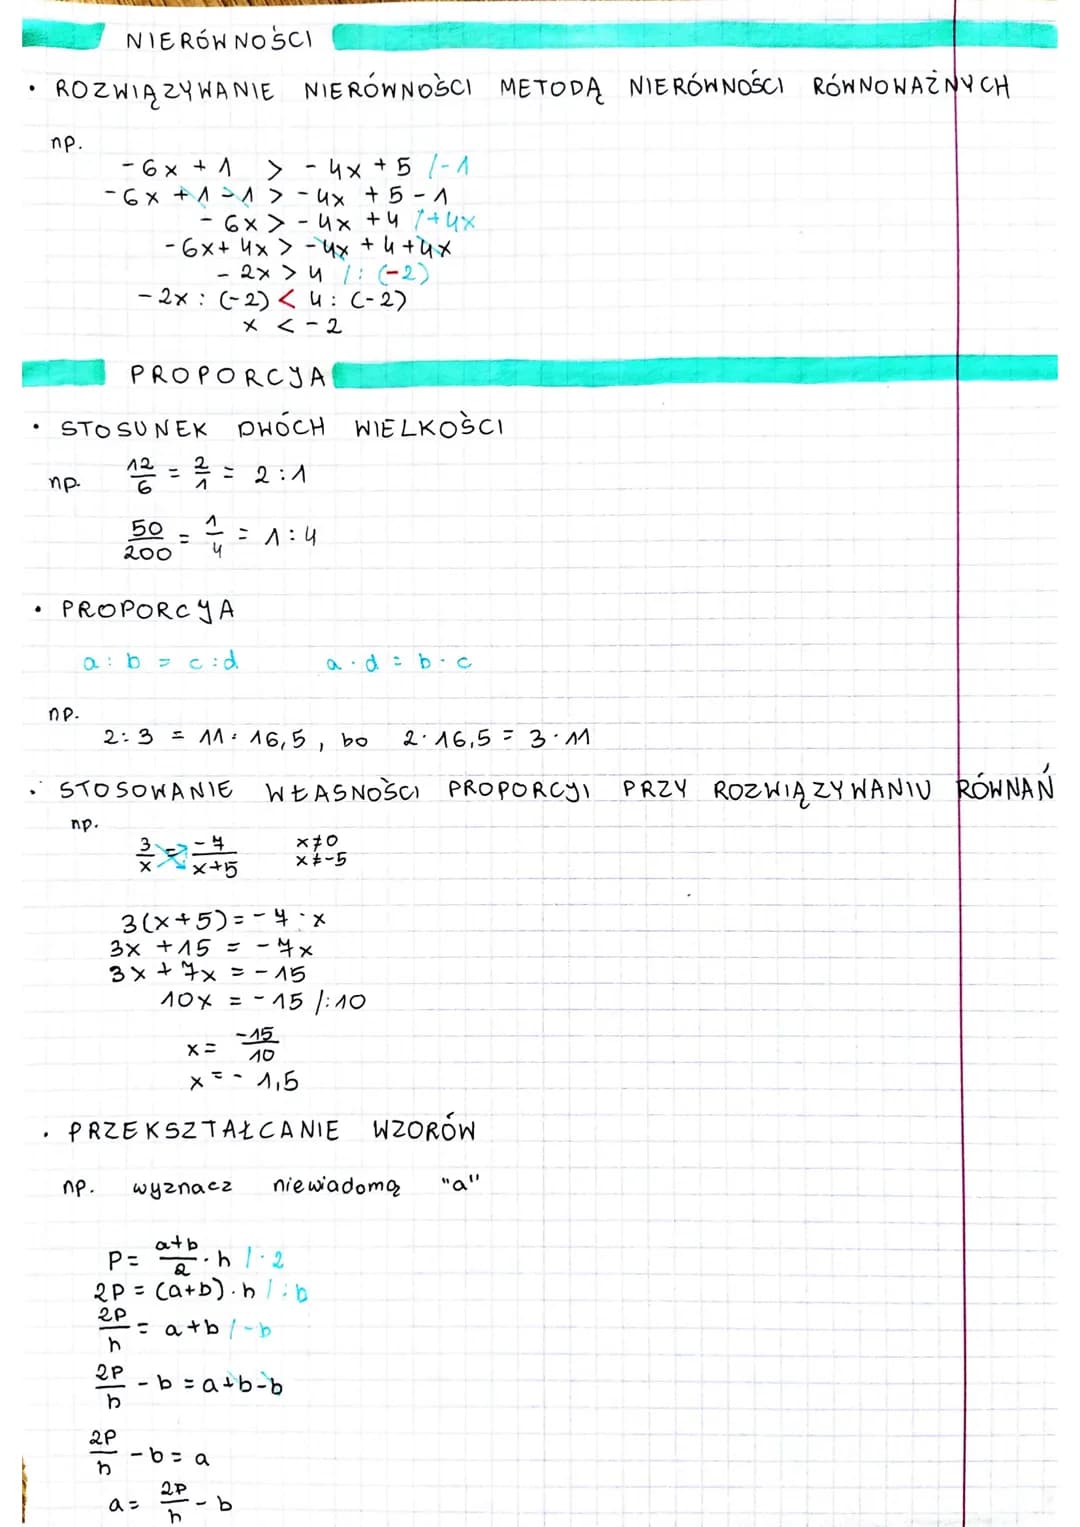 NIERÓWNOŚCI
• ROZWIĄZYWANIE NIERÓWNOŚCI METODĄ NIERÓWNOŚCI RÓWNOWAŻNYCH
np.
-6x + 1 > -4x + 5 /-1
-6x + 1 - 1 > -4x + 5 - 1
-6x > -4x + 4 /+4x
-6x + 4x > -4x + 4 + 4x
-2x > 4 /: (-2)
-2x : (-2) < 4 : (-2)
x < -2
PROPORCJA
• STOSUNEK DWÓCH WIELKOŚCI
np. 12/6 = 2/1 = 2 : 1
50/200 = 1/4 = 1 : 4
• PROPORCJA
a : b = c : d a · d = b · c
np.
2 : 3 = 11 : 16,5, bo 2 · 16,5 = 3 · 11
• STOSOWANIE WŁASNOŚCI PROPORCJI PRZY ROZWIĄZYWANIU RÓWNAŃ
np.
3/x = -7/x+5 x≠0
x≠-5
3(x+5) = -7 · x
3x + 15 = -7x
3x + 7x = -15
10x = -15 /:10
x = -15/10
x = -1,5
• PRZEKSZTAŁCANIE WZORÓW
np. wyznacz niewiadomą "a"
P = a+b/2 · h /·2
2P = (a+b) · h /:b
2P/h = a+b /-b
2P/h - b = a+b-b
2P/h - b = a
a = 2P/h - b